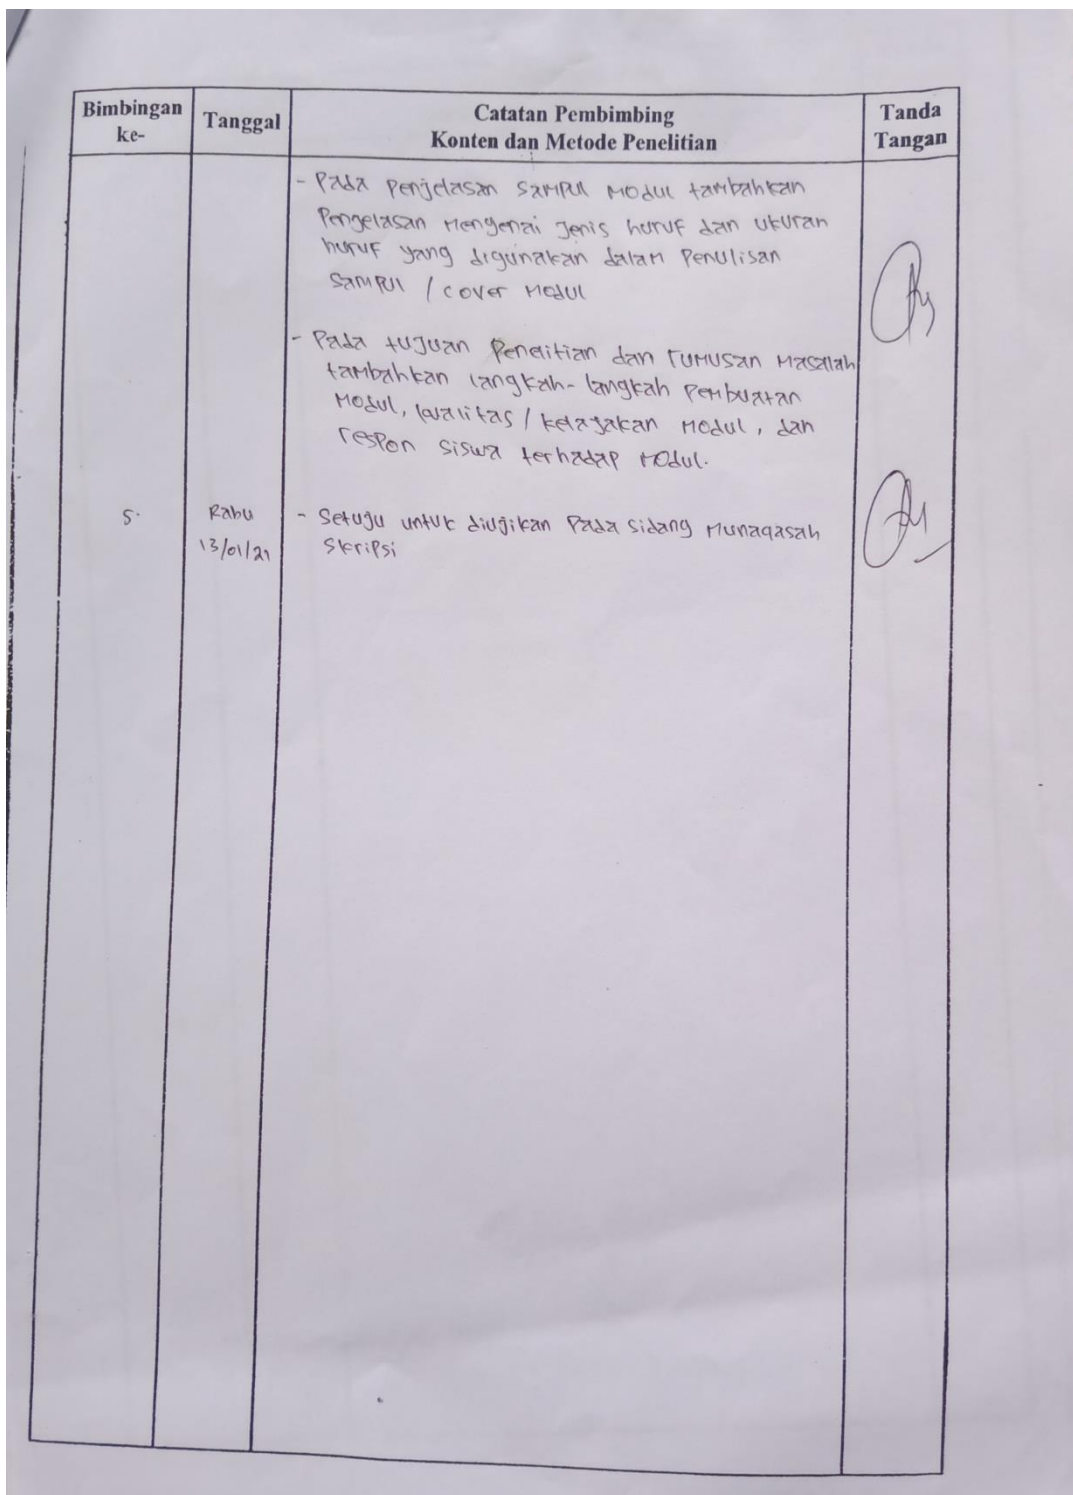 Bimbingan ke-
Tanggal
Catatan Pembimbing
Konten dan Metode Penelitian
Tanda Tangan
- Pada Penjelasan Sampul Modul tambahkan
Pengelasan Mengenai Jenis huruf dan ukuran
huruf yang digunakan dalam Penulisan
Sampul / cover Modul
- Pada tujuan Penelitian dan rumusan Masalah
tambahkan langkah-langkah Pembuatan
Modul, kualitas / kelayakan Modul, dan
respon siswa terhadap Modul.
5.
Rabu
13/01/21
- Setuju untuk diujikan Pada Sidang Munaqasah
Skripsi